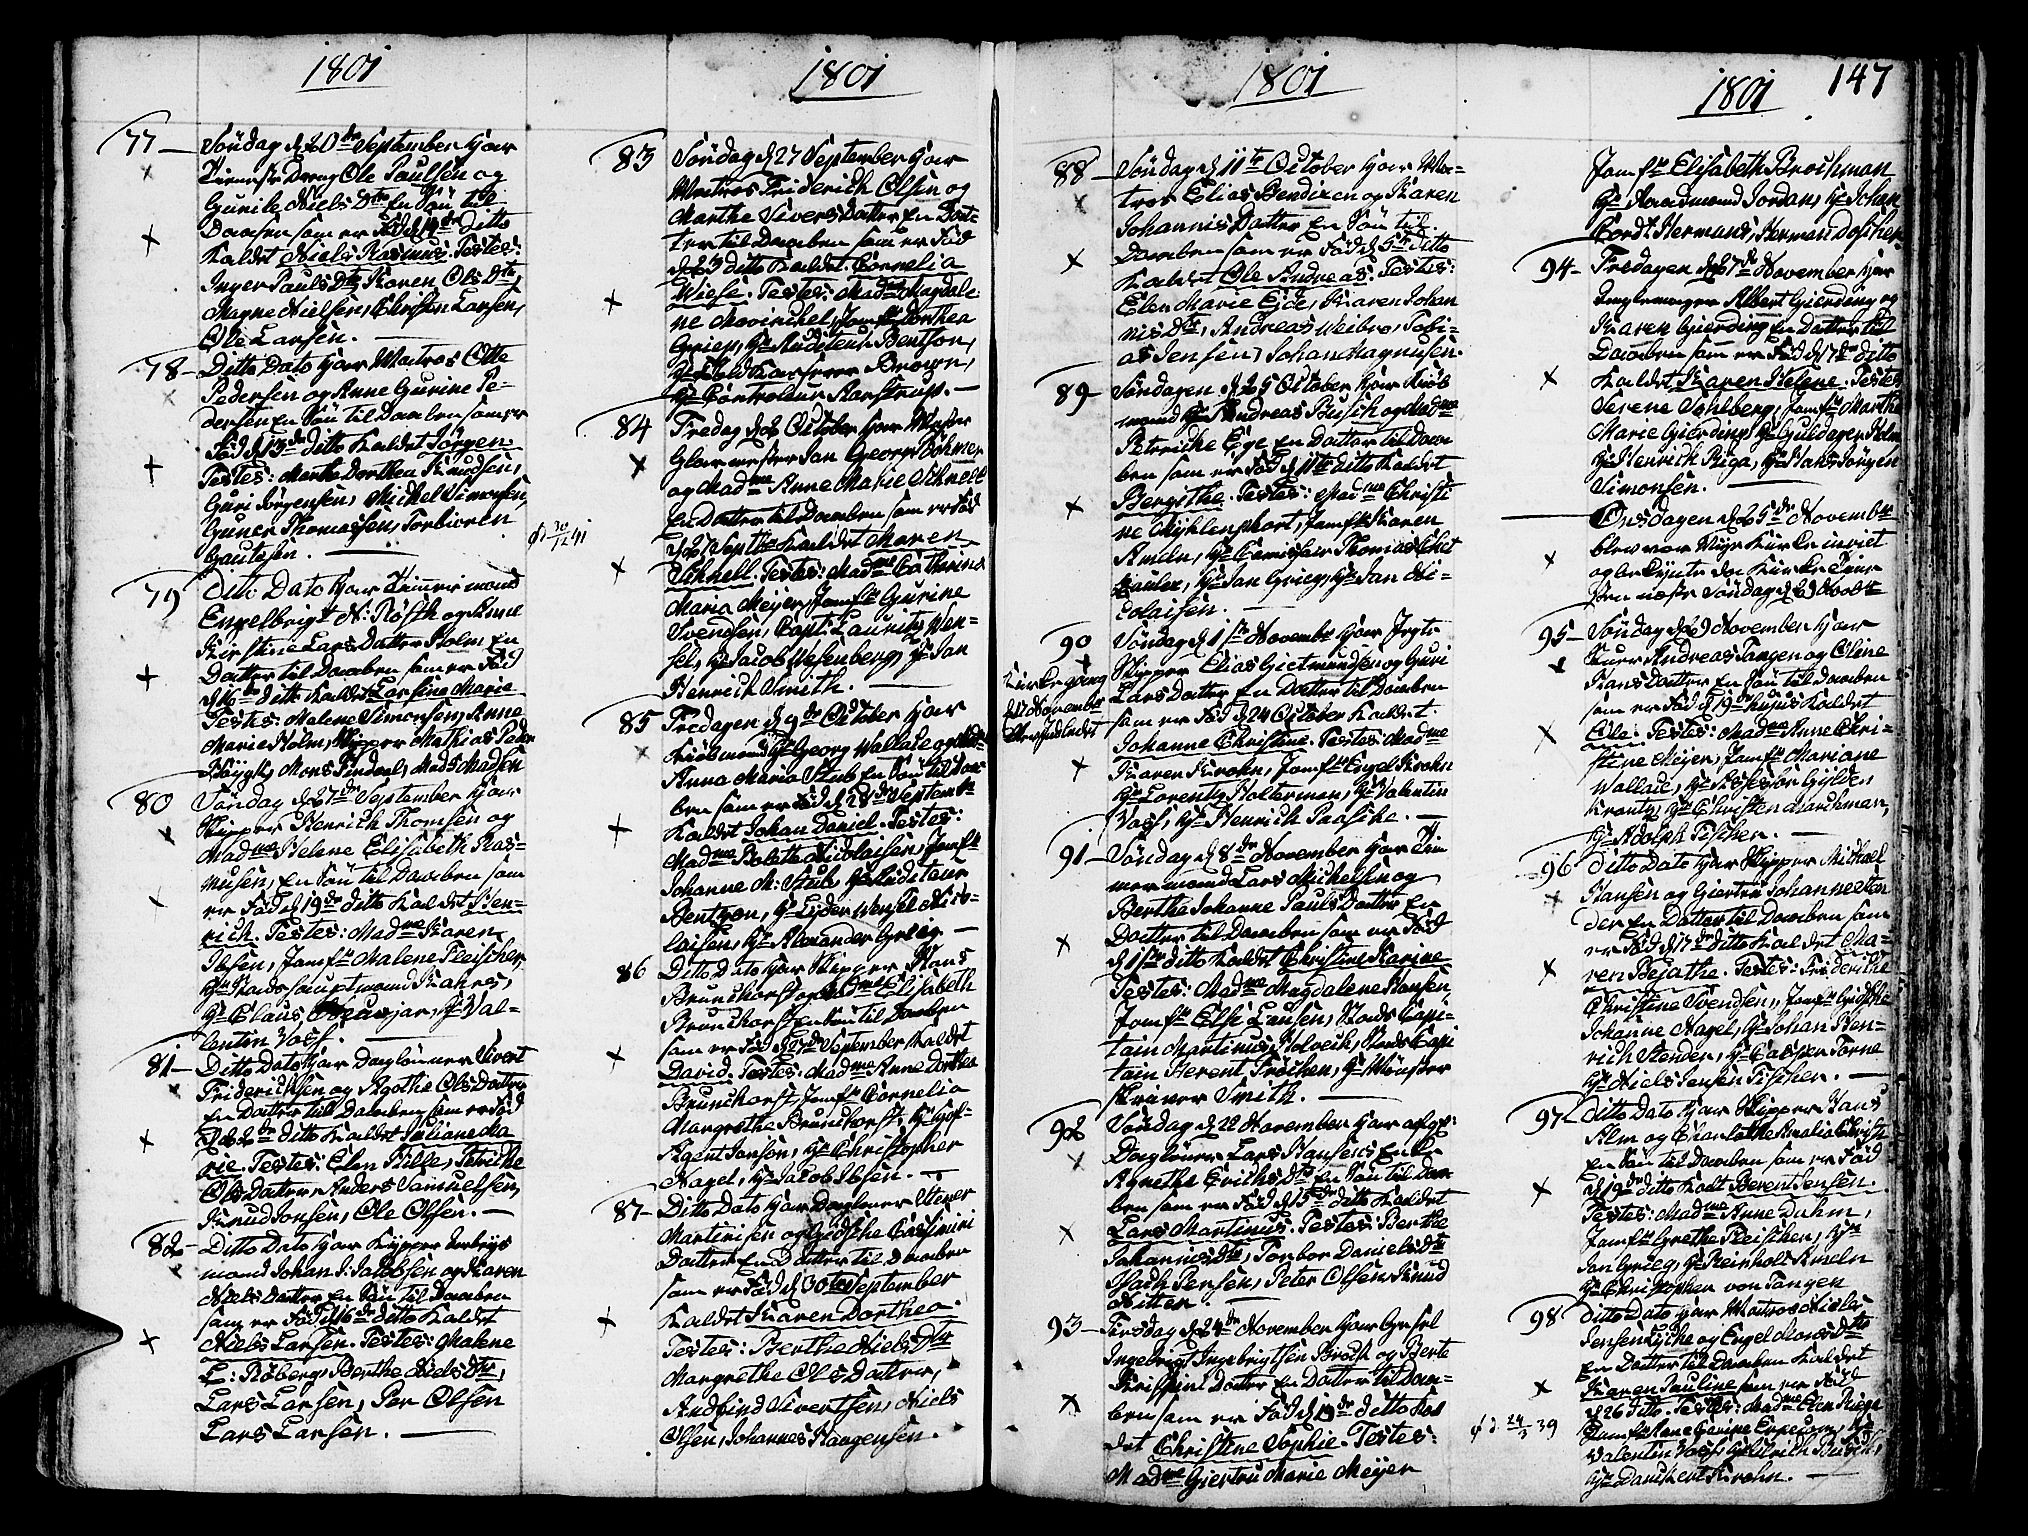 1801
77 Søndag d 20de September hjør
Tieneste Dreng Ole Paulsen og
Gurile Niels Dtr En Søn til
Daaben som er Fød d 14de Ditto
Kaldet Niels Rasmus. Testes:
Inger Pauls Dtr, Karen Ols Dtr,
Magne Nielsen, Christen Larsen,
Ole Larsen.
78 Ditto Dato hjør Matros Otte
Pedersen og Anne Gurine Pe-
dersen En Søn til Daaben som er
Fød d 13de ditto Kaldet Jørgen.
Testes: Marthe Dorthea Knudsen,
Guri Jørgensen, Michel Simonsen,
Guner Thomassen, Torbiøren
Gautesen.
79 Ditto Dato hjør Timmermand
Engelbrigt N: Røsth og Anne
Kirstine Lars Datter Holm En
Datter til Daaben som er Fød
d 16de ditto Kaldet Larsine Marie
Testes: Malene Simonsen, Anne
Marie Holm, Skipper Mathias Peder
Schygt, Mons Sindaal, Mads Madsen
80 Søndag d 27de September hjør
Skipper Henrich Thomsen og
Madme Helene Elisabeth Ras-
musen, En Søn til Daaben som
er Fød d 19de ditto Kaldet Hen-
rich. Testes: Madme Karen
Ibsen, Jomfr Malene Fleischer,
Hr Raadsauptmand Kahrs,
Hr Claus, Hr Val-
lentin Voss.
81 Ditto Dato hjør Dagløner Sivert
Friderichsen og Agothe Ols Datter
En Datter till Daaben som er Fød
d 22de ditto Kaldet Juliane Ma
rie. Testes: Elen Hille, Petriche
Ols Datter, Anders Samuelsen,
Knud Jonsen, Ole Olsen.
82 Ditto Dato hjør
mand Johan J: Jacobsen og Karen
Niels Datter En Søn til Daaben
som er Fød d 16de ditto Kaldet
Niels Larsen. Testes: Malene
L: Røberg, Berthe Niels Dtr,
Lars Larsen, Per Olsen
Lars Larsen.
1801
83 Søndag d 27 September hjør
Matros Friderich Olsen og
Marthe Sivers Datter En Dat-
ter til Daaben som er Fød
d 23 ditto Kaldet Cornelia
Wiese. Testes: Madme Magdale-
ne Mowinchel, Jomfr Dorthea
Grip, Hr Auditeur Bentson,
Hr Told Kasserer Brown,
Hr Controleur Aarstrup.
84 Fredag d 2 October hjør Mester
Glarmester Jan Georg Bøhmer
og Madme Anne Marie Schnell
En Datter til Daaben som er Fød
d 27 Septbr Kaldet Maren
Schnell. Testes: Madme Cathrina
Maria Meyer, Jomfr Gurine
Svendsen, Capt: Laurits Wen-
sel, Hr Jacob Wesenberg, Hr Jan
Henrich Smith.
d 30/12 41
85 Fredagen d 9de October hjør
Kiøbmand Hr Georg Wallace og Madme
Anna Maria Stub En Søn til Daa-
ben som er Fød d 28de Septembr
Kaldet Johan Daniel. Testes:
Madme Bolette Nicolaisen, Jomfr
Johanne M: Stub, Hr Auditeur
Bentzon, Hr Lyder Wensel Nico-
laisen, Hr Alexander Grieg.
86 Ditto Dato hjør Skipper Hans
Brunchorst og Madme Elisabeth
Brunchorst En Søn til Daaben
som er Fød d 17de September Kaldet
David. Testes: Madme Anne Dorthea
Brunchorst, Jomfr Cornelia
Margrethe Brunchorst, Hr Hof-
Agent Janson, Hr Christopher
Nagel, Hr Jacob Ibsen.
87 Ditto Dato hjør Dagløner Stener
Martinisen og Gidsche Casimiri
Datter En Datter til Daaben
som er Fød d 30te September
Kaldet Karen Dorthea.
Testes: Berthe Niels Dtr
Margrethe Ols Datter,
Andfind Sivertsen, Niels
Olsen, Johannes Haagensen.
1801
88 Søndag d 11te October hjør Ma-
tros Elias Bendixen og Karen
Johannis Datter En Søn til
Daaben som er Fød d 5te ditto
Kaldet Ole Andreas. Testes:
Elen Marie Eide, Karen Johan
nis Dtr, Andreas Weibro, Tobi-
as Jensen, Johan Magnusen.
89 Søndagen d 25 October hjør Kiøb
mand Hr Andreas Busch og Madme
Petriche Ege En Datter til Daa
ben som er Fød d 11te ditto Kaldet
Bergithe. Testes: Madme Christi
ne Myklenphort, Jomfr Karen
Ameln, Hr Camisair Thomas Chet
, Hr Jan Grieg, Hr Jan Ni-
colaisen.
90 Søndag d 1ste Novembr hjør Jegte
Skipper Elias Gietmundsen og Guri
Lars Datter En Datter til Daaben
som er Fød d 24 October Kaldet
Johanne Christine. Testes: Madme
Karen Krohn, Jomfr Engel Krohn
Hr Lorentz Holterman, Hr Valentin
Voss, Hr Henrich Paasche.
Kirkegang
d 17 Novembr
91 Søndag d 8de November hjør Tim
mermand Lars Michelsen og
Berthe Johanne Pauls Datter En
Datter til Daaben som er Fød
d 1ste ditto Kaldet Christine Karine
Testes: Madme Magdalene Hansen,
Jomfr Else Lausen, Raads Capi-
tain Martinus Holvech, Raads Capi
tain Herent Trøchen, Hr Mønster
Skriver Smith.
92 Søndag d 22 November hjør afgl:
Dagløner Lars Hansens Enke
Agnethe Erichs Dtr En Søn til Daa
ben som er Fød d 15de ditto Kaldet
Lars Martinus. Testes: Berthe
Johannes Dtr, Torbor Daniels Dtr
Isach Jersen, Peter Olsen, Knud
Nitter.
93 Tirsdag d 24de November hjør Gesel
Ingebrigt Ingebrigtsen Brock og Berte
Christine Datter En Datter til Daa-
ben som er Fød d 19de ditto Kal
det Christine Sophie. Testes:
Madme Giertru Marie Meyer
1801
147
Jomfr Elisabeth Brochman
Hr Raadmand Jordan, Hr Johan
Cordt Hermans, Herman Dosscher.
94 Fredagen d 27de November hjør
Albert Gierding og
Karen Gierding En Datter til
Daaben som er Fød d 17de ditto
Kaldet Karen Helene. Testes
Serene Sohlberg, Jomfr Marthe
Marie Gierding, Hr Guldager Holm
Hr Henrich Riga, Hr Hans Jørgen
Simonsen.
Onsdagen d 25de Novembr
blev vor Nye Kirke inviet
og begynte der Kirke Tiene
sten næste Søndag d 29 Novbr
95 Søndag d 29 November hjør
Kuer Andreas Tangen og Oline
Hans Datter En Søn til Daaben
som er Fød d 19de hujus Kaldet
Ole. Testes: Madme Anne Chri-
stine Meyer, Jomfr Mariane
Wallace, Hr Assessor Gylden
krantz, Hr Christen Marchman,
Hr Adolph Fischer.
96 Ditto Dato hjør Skipper Michael
Hansen og Giertru Johanne Sten
der En Datter til Daaben som
er Fød d 17de ditto Kaldet Ma-
ren Bejathe. Testes: Friderikke
Christine Svendsen, Jomfr Gidsche
Johanne Nagel, Hr Johan Hen-
rich Stender, Hr Casper Torne
Hr Niels Jensen Fischer.
97 Ditto Dato hjør Skipper Hans
Alm og Charlotthe Amalia Christi
En Søn til Daaben som er Fød
d 19de ditto Kaldt Berent Jensen.
Testes: Madme Anne Dahm,
Jomfr Grethe Fleischer, Hr
Jan Grieg, Hr Reinholt Ameln
Hr Christopher von Tangen
98 Ditto Dato hjør Matros Niclai
Jensen Lyche og Engel Mons Dtr
En Datter til Daaben Kaldet
Karen Pauline som er Fød
d 26 ditto. Testes: Madme Elen Krogh
Jomfr Lene Gurine Erpecom, Hr
Valentin Voss, Hr Fridrich Busch,
Hr Danchert Krohn.
d 24/3 39